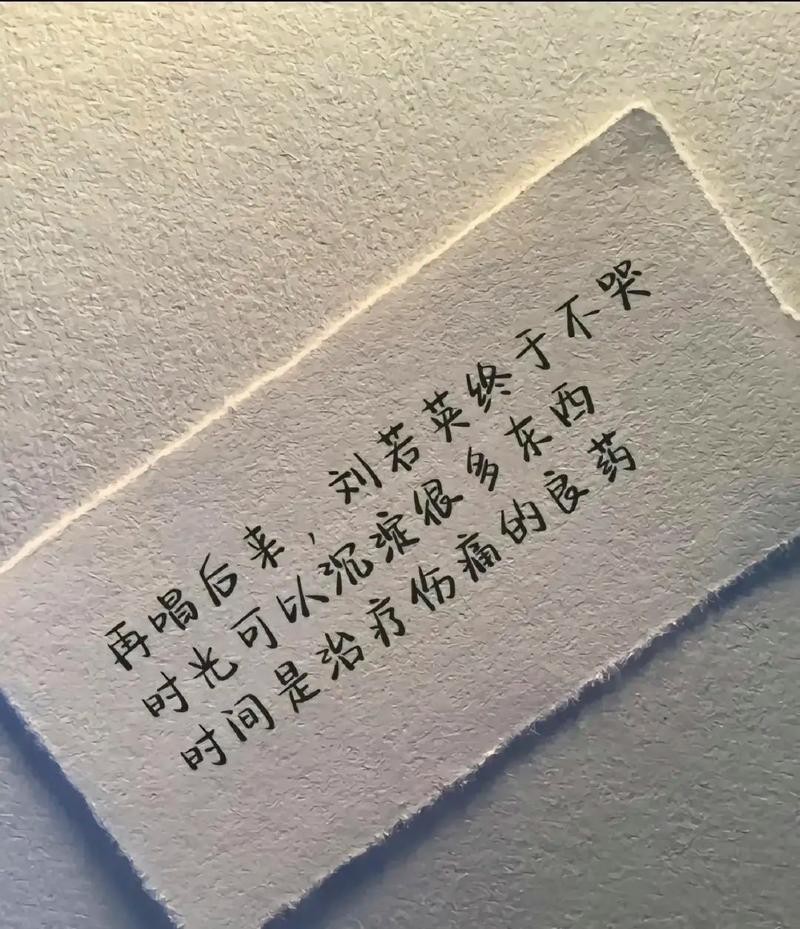 再唱后来，刘若英终于不哭
时光可以沉淀很多东西
时间是治疗伤痛的良药